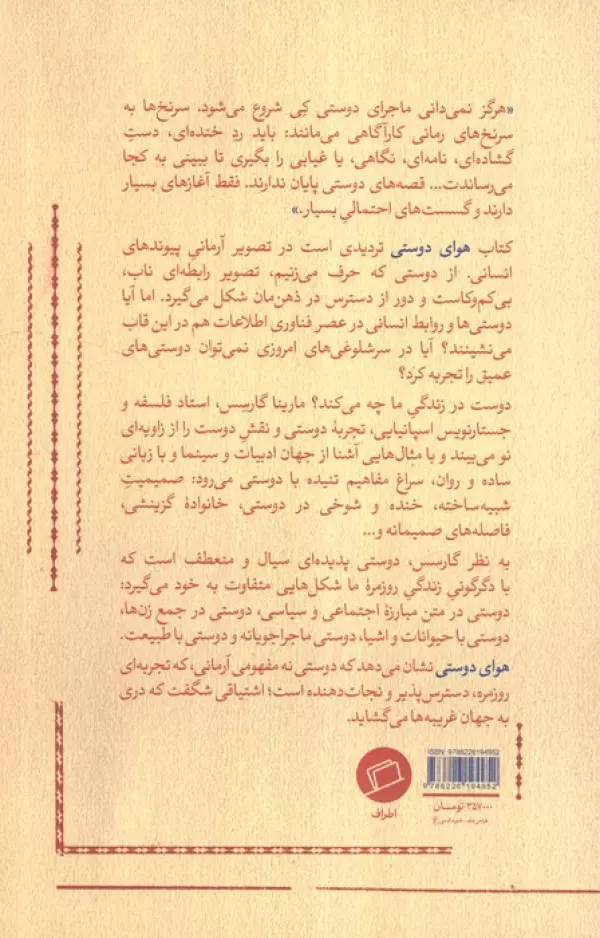 «هرگز نمی‌دانی ماجرای دوستی کِی شروع می‌شود. سرنخ‌ها به
سرنخ‌های رمانی کارآگاهی می‌مانند: باید ردِ خنده‌ای، دستِ
گشاده‌ای، نامه‌ای، نگاهی، یا غیابی را بگیری تا ببینی به کجا
می‌رساندت... قصه‌های دوستی پایان ندارند. فقط آغازهای بسیار
دارند و گسست‌های احتمالیِ بسیار.»
کتاب هوای دوستی تردیدی است در تصویر آرمانیِ پیوندهای
انسانی. از دوستی که حرف می‌زنیم، تصویر رابطه‌ای ناب،
بی‌کم‌وکاست و دور از دسترس در ذهن‌مان شکل می‌گیرد. اما آیا
دوستی‌ها و روابط انسانی در عصر فناوری اطلاعات هم در این قاب
می‌نشینند؟ آیا در سرشلوغی‌های امروزی نمی‌توان دوستی‌های
عمیق را تجربه کرد؟
دوست در زندگیِ ما چه می‌کند؟ مارینا گارسِس، استاد فلسفه و
جستارنویس اسپانیایی، تجربهٔ دوستی و نقشِ دوست را از زاویه‌ای
نو می‌بیند و با مثال‌هایی آشنا از جهان ادبیات و سینما و با زبانی
ساده و روان، سراغ مفاهیم تنیده با دوستی می‌رود: صمیمیتِ
شبیه‌ساخته، خنده و شوخی در دوستی، خانوادهٔ گزینشی،
فاصله‌های صمیمانه و...
به نظر گارسس، دوستی پدیده‌ای سیال و منعطف است که
با دگرگونیِ زندگیِ روزمرهٔ ما شکل‌هایی متفاوت به خود می‌گیرد:
دوستی در متن مبارزهٔ اجتماعی و سیاسی، دوستی در جمع زن‌ها،
دوستی با حیوانات و اشیا، دوستی ماجراجویانه و دوستی با طبیعت.
هوای دوستی نشان می‌دهد که دوستی نه مفهومی آرمانی، که تجربه‌ای
روزمره، دسترس‌پذیر و نجات‌دهنده است؛ اشتیاقی شگفت که دری
به جهان غریبه‌ها می‌گشاید.
ISBN: 9786226194952
9 786226 194952
۳۵۷۰۰۰ تومـــان
اطراف